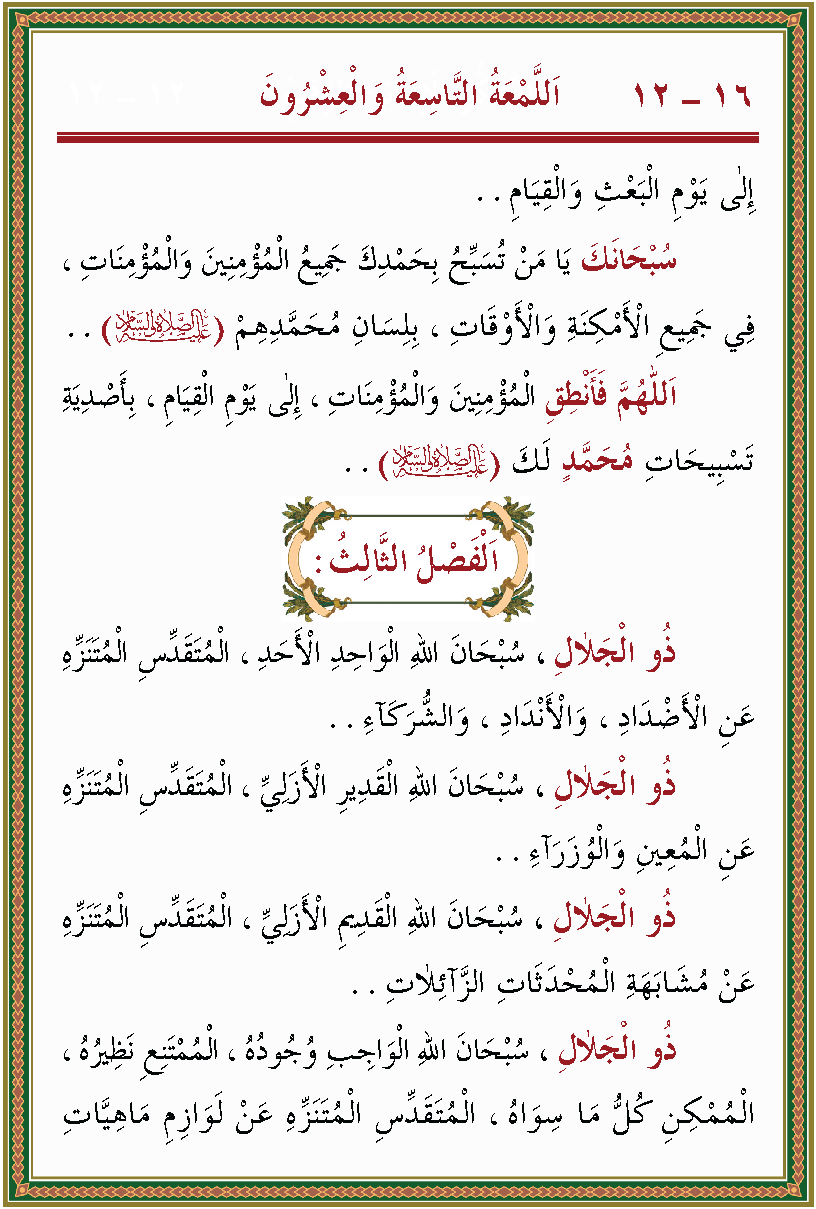 ١٦ – ١٢ اَللَّمْعَةُ التَّاسِعَةُ وَالْعِشْرُونَ
إِلٰى يَوْمِ الْبَعْثِ وَالْقِيَامِ . .
سُبْحَانَكَ يَا مَنْ تُسَبِّحُ بِحَمْدِكَ جَمِيعُ الْمُؤْمِنِينَ وَالْمُؤْمِنَاتِ ،
فِي جَمِيعِ الْأَمْكِنَةِ وَالْأَوْقَاتِ ، بِلِسَانِ مُحَمَّدِهِمْ (عَلَيْهِ الصَّلَاةُ وَالسَّلَامُ) . .
اَللّٰهُمَّ فَأَنْطِقِ الْمُؤْمِنِينَ وَالْمُؤْمِنَاتِ ، إِلٰى يَوْمِ الْقِيَامِ ، بِأَصْدِيَةِ
تَسْبِيحَاتِ مُحَمَّدٍ لَكَ (عَلَيْهِ الصَّلَاةُ وَالسَّلَامُ) . .
اَلْفَصْلُ الثَّالِثُ :
ذُو الْجَلَالِ ، سُبْحَانَ اللهِ الْوَاحِدِ الْأَحَدِ ، الْمُتَقَدِّسِ الْمُتَنَزِّهِ
عَنِ الْأَضْدَادِ ، وَالْأَنْدَادِ ، وَالشُّرَكَآءِ . .
ذُو الْجَلَالِ ، سُبْحَانَ اللهِ الْقَدِيرِ الْأَزَلِيِّ ، الْمُتَقَدِّسِ الْمُتَنَزِّهِ
عَنِ الْمُعِينِ وَالْوُزَرَآءِ . .
ذُو الْجَلَالِ ، سُبْحَانَ اللهِ الْقَدِيمِ الْأَزَلِيِّ ، الْمُتَقَدِّسِ الْمُتَنَزِّهِ
عَنْ مُشَابَهَةِ الْمُحْدَثَاتِ الزَّآئِلَاتِ . .
ذُو الْجَلَالِ ، سُبْحَانَ اللهِ الْوَاجِبِ وُجُودُهُ ، الْمُمْتَنِعِ نَظِيرُهُ ،
الْمُمْكِنِ كُلُّ مَا سِوَاهُ ، الْمُتَقَدِّسِ الْمُتَنَزِّهِ عَنْ لَوَازِمِ مَاهِيَّاتِ